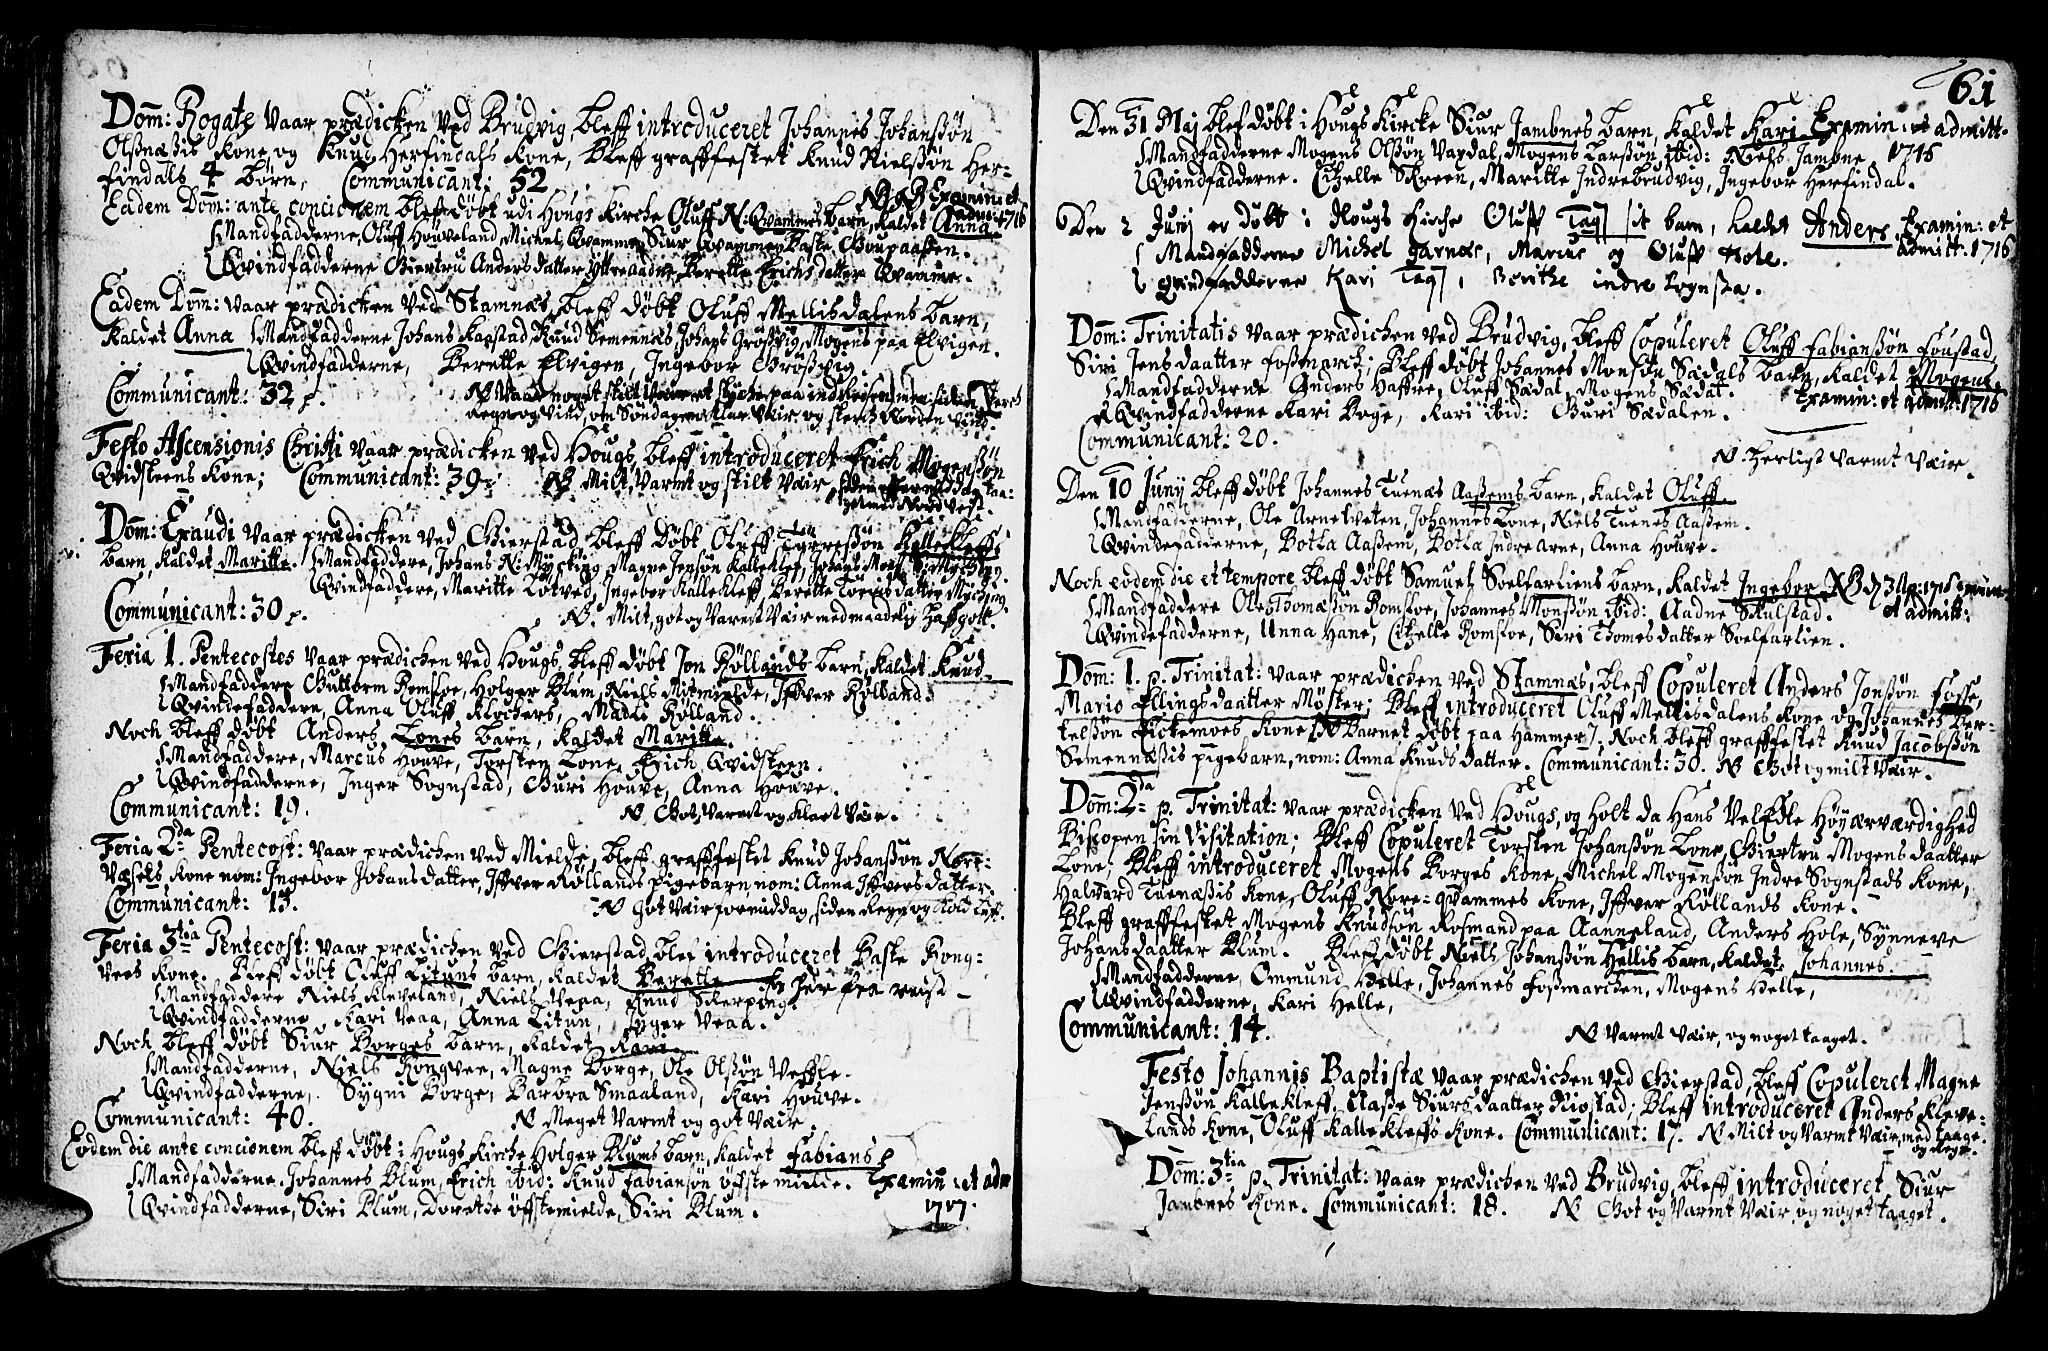 Dom̄: Rogate vaar prædicken ved Brudvig, bleff introduceret Johannes Johanssøn
Olssnæssis Kone, og Knud Herfindals Kone, Bleff grafffestet Knud Nielssøn Her-
findals 4 børn, Communicant: 52
NB NB Examin: et
admit: 1716
Eadem Dom̄: ante concionem blef døbt udi Hougs Kircke Oluff N: Qvammes barn, kaldet Anna
Mandfadderne, Oluff Houveland, Michel Qvamme, Siur Qvammen, Baste
Qvindfadderne Giertru Andersdatter, Berette Erichsdatter Qvamme.
Eadem Dom̄: vaar prædicken ved Stamnæs, bleff døbt Oluff Mellisdalens barn,
kaldet Anna Mandfadderne Johans Kaastad, Knud Semennæs, Johans Grøssvig, Mogens paa Elvigen.
Qvindfadderne, Berette Elvigen, Ingebor Grøssvig.
Communicant: 32
Regn og Vind, om Søndagen klar Vær og sterck Norden Vind.
Festo Ascensionis Christi vaar prædicken ved Hougs, bleff introduceret Erich Mogenssøn
Qvidsteens Kone; Communicant: 39 NB Milt, Varmt og stilt Vær, siden effermiddag
Nordvest.
Dom̄: Exaudi vaar prædicken ved Gierstad, bleff døbt Oluff Kallekleffs
barn, kaldet Maritte. Mandfaddere, Johans N: Mycking, Magne Jensøn Kalleklef,
Qvindfaddere, Maritte Totved, Ingebor Kallekleff, Berette datter Mycking.
Communicant: 30 N. Milt, got og Varmt Vær med maadelig
Feria 1. Pentecostes vaar prædichen ved Hougs, bleff døbt Jon Røllands barn, kaldet Knud.
Mandfaddere Guttorm Romsloe, Holger Blum, Niels Mitmielde, Iffver Rølland.
Qvindefaddere, Anna Oluff Klochers, Madle Rølland.
Noch bleff døbt Anders Tones barn, kaldet Maritte.
Mandfaddere, Marcus Houve, Torsten Tone, Erich Qvidsteen.
Qvindfadderne, Inger Sognstad, Guri Houve, Anna Houve.
Communicant: 19. NB Got, Varmt og klart Vær.
Feria 2da Pentecost: vaar prædichen ved Mielde, bleff grafffestet Knud Johanssøn Nore-
Væsels Kone nom: Ingebor Johansdatter, Iffver Røllands pigebarn, nom: Anna Iffversdatter.
Communicant: 13. NB Got Vær formiddag, siden Regn og kold lufft.
Feria 3tia Pentecost: vaar prædichen ved Gierstad, blef introduceret Baste Rong-
vees Kone. Bleff døbt Oluff Tituns barn, kaldet Berette her fra reist
Mandfaddere Niels Kleveland, Niels Veaa, Knud Skerping.
Qvindfadderne Kari Veaa, Anna Titun, Inger Veaa.
Noch bleff døbt Siur Borges barn, kaldet Kari.
Mandfadderne, Niels Rongvee, Magne Borge, Ole Olssøn Veffle.
Qvindfadderne, Sygni Borge, Barbra Smaaland, Kari Houve.
Communicant: 40. NB Meget Varmt og got Vær.
Eodem die ante concionem bleff døbt i Hougs Kirche Holger Blums barn, kaldet Fabians
Mandfadderne. Johannes Blum, Erich ibid: Knud Fabiansøn øfste mielde. Examin: et adm
Qvindfadderne, Siri Blum, Dorethe øffstemielde, Siri Blum. 1717.
61
Den 31 Maj blef døbt i Hougs Kircke Siur Jambnes barn, kaldet Kari Examin: et admitt-
Mandfadderne Mogens Olssøn Vaxdal, Mogens Larssøn ibid: Niels Jambne 1715
Qvindfadderne. Citzelle Skreen, Maritte Indrebrudvig, Ingebor Herfindal.
Den 2 Junj er døbt i Hougs Kirche Oluff Tag sit barn, kaldet Anders Examin: et
Mandfadderne Michel Garnes, Marius og Oluff Hole. admitt: 1716
Qvindfadderne Kari Tag, Berithe indre Sognsta.
Dom̄: Trinitatis vaar prædichen ved Brudvig, bleff Copuleret Oluff Fabianssøn Foustad,
Siri Jensdaatter Fossmarck; Bleff døbt Johannes Monsøn Sædals barn, kaldet Mogens.
Mandfadderne Anders Haffre, Oluff Sædal, Mogens Sædal. Examin: et admitt: 1716
Qvindfadderne Kari Boge, Kari ibid: Guri Sædalen.
Communicant: 20. N. herligt Varmt Vær.
Den 10 Junÿ bleff døbt Johannes Tuenæs Aassems barn, kaldet Oluff.
Mandfadderne, Ole Arnetveten, Johannes Tone, Niels Tuenes Aassem.
Qvindefadderne, Botla Aassem, Botla Indre Arne, Anna Houve.
Noch eodem die et tempore bleff døbt Samuel Soelfarliens barn, kaldet Ingebor NB
Mandfaddere Ole Thomæssøn Romsloe, Johannes Monssøn ibid: Aadne Skulstad. et admitt:
Qvindefadderne, Anna Hane, Citzelle Romsloe, Siri Thomesdatter Soelfarlien.
Dom̄: 1. p. Trinitat: vaar prædichen ved Stamnæs, bleff Copuleret Anders Jonssøn Fosse,
Mario Ellingsdaatter Møster; Bleff introduceret Oluff Mellisdalens Kone og Johannes Ber-
telssøn Eickemoes, Kone [NB Barnet døbt paa Hammer], Noch bleff grafffestet Knud Jacobssøn
Semennæssis pigebarn, nom: Anna Knudsdatter. Communicant: 30. NB Got og milt Vær.
Dom̄: 2da p. Trinitat: vaar prædicken ved Hougs, og holt da Hans Velædle Høyærværdighed
Biscopen sin Visitation; Bleff Copuleret Torsten Johanssøn Tone, Giertru Mogensdaatter
Tone; Bleff introduceret Mogens Borges Kone, Michel Mogenssøn Indre Sognstads Kone,
Halvard Tuenæssis Kone, Oluff Nore-qvammes Kone, Iffver Røllands Kone.
Bleff grafffestet Mogens Knudsøn Rosmand paa Aanneland, Anders Hole, Synneve
Johansdaatter Blum. Bleff døbt Niels Johanssøn Hellis barn, kaldet, Johannes.
Mandfadderne, Ommund Helle, Johannes Fossmarchen, Mogens Helle,
Qvindfadderne, Kari Helle,
Communicant: 14. NB Varmt Vær, og noget taaget.
Festo Johannis Baptistæ vaar prædichen ved Gierstad, bleff Copuleret Magne
Jenssøn Kallekleff, Aasse Siursdaatter Riostad; Bleff introduceret Anders Kleve-
lands Kone, Oluff Kallekleffs Kone. Communicant: 17. NB Milt og Varmt Vær, med taage.
og Regn.
Dom̄: 3tia p. Trinitat: vaar prædichen ved Brudvig, bleff introduceret Siur
Jambnes Kone. Communicant: 18. NB Got og Varmt Vær og noget taaget.